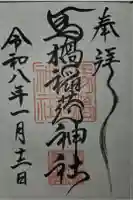 奉拝
馬橋稲荷神社
令和八年一月十二日